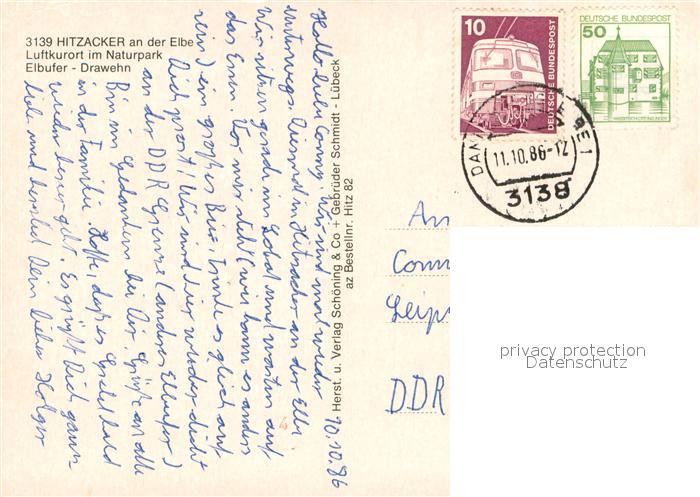 3139 HITZACKER an der Elbe
Luftkurort im Naturpark
Elbufer - Drawehn
10
DEUTSCHE BUNDESPOST
DEUTSCHE BUNDESPOST
50
11.10.86-12
3138
Herst. u. Verlag Schöning & Co + Gebrüder Schmidt - Lübeck
az Bestellnr. Hitz 82
10.10.86
Hallo liebe Conny. Wir sind mal wieder
unterwegs. Diesmal in Hitzacker an der Elbe.
Wir sitzen gerade im Lokal und warten auf
das Essen. Vor mir steht (wie kann es anders
sein) ein großes Bier, trinke es gleich auf
Dich prost! Wir sind hier wieder dicht
an der DDR Grenze (anderes Elbufer)
Bin in Gedanken bei Dir. Grüße an alle
in der Familie. Hoffe, daß es bald
wieder besser geht. Es grüßt Dich ganz
lieb und herzlich Dein lieber Holger
An
Conn
Leip
DDR
privacy protection
Datenschutz